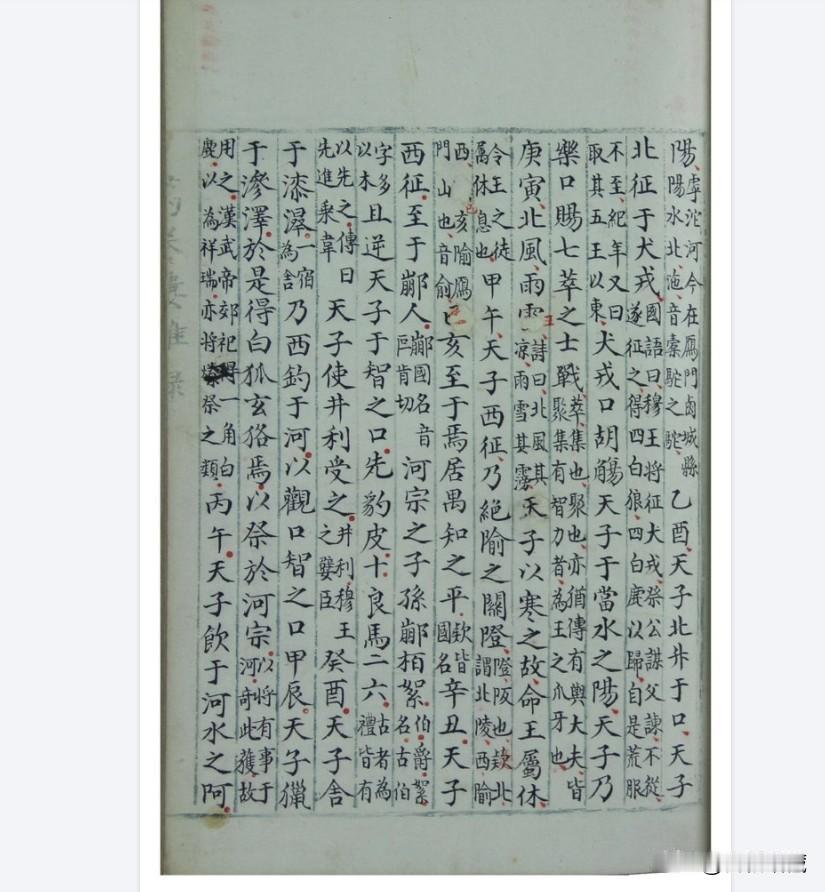 陽寧沱河今在鴈門鹵城縣陽水北沲音橐駝之駝乙酉天子北升于口天子
北征于犬戎國語曰穆王將征犬戎祭公謀父諫不從遂征之得四白狼四白鹿以歸自是荒服
不至紀年又曰取其五王以東犬戎口胡觴天子于當水之陽天子乃
樂口賜七萃之士戰萃集也聚也亦猶傳有輿大夫皆聚集有智力者為王之爪牙也
庚寅北風雨雪詩曰北風其凉雨雪其霶天子以寒之故命王屬休
令王之徒屬休息也甲午天子西征乃絕隃之關隥隥阪也欵北謂北陵西隃
西亥隃鴈門山也音俞己亥至于焉居禺知之平欵皆國名辛丑天子
西征至于䣙人䣙國名音肯切河宗之子孫䣙栢絮伯爵絮名古伯
字多以木且逆天子于智之口先豹皮十良馬二六古者為禮皆有
以先之傳曰先進乘韋天子使井利受之井利穆王之嬖臣癸酉天子舍
于漆澤一宿為舍乃西釣于河以觀口智之口甲辰天子獵
于滲澤於是得白狐玄狢焉以祭於河宗以將有事于河奇此獲故
用之漢武帝郊祀得一角白麃以為祥瑞亦將祭之類丙午天子飲于河水之阿